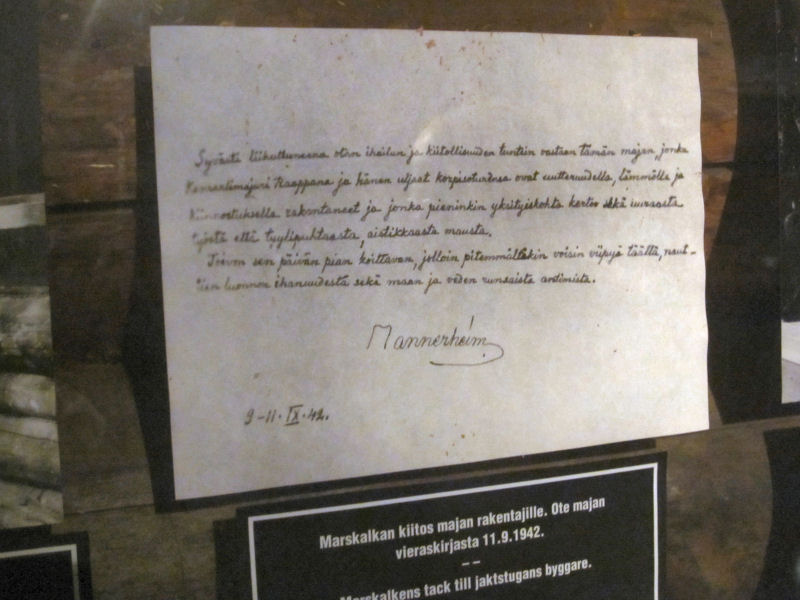 Syvästi liikuttuneena otan ihailun ja kiitollisuuden tuntein vastaan tämän majan, jonka
Kenraalimajuri Raappana ja hänen uljaat korpisoturinsa ovat uutteruudella, lämmöllä ja
kiinnostuksella rakentaneet ja jonka pieninkin yksityiskohta kertoo sekä uuraasta
työstä että tyylipuhtaasta, aistikkaasta mausta.
Toivon sen päivän pian koittavan, jolloin pitemmältäkin voisin viipyä täällä, naut-
tien luonnon ihanuudesta sekä maan ja veden runsaista antimista.
Mannerheim
9-11. IX. 42.
Marskalkan kiitos majan rakentajille. Ote majan
vieraskirjasta 11.9.1942.
– –
Marskalkens tack till jaktstugans byggare.